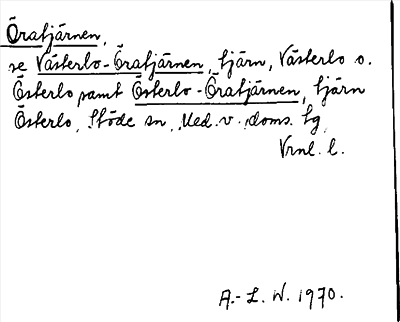 Öratjärnen,
se Västerlo-Öratjärnen, tjärn, Västerlo o.
Österlo samt Österlo-Öratjärnen, tjärn
Österlo, Stöde sn, Med. v. doms. tg,
Vrnl. l.
A.-L. W. 1970.